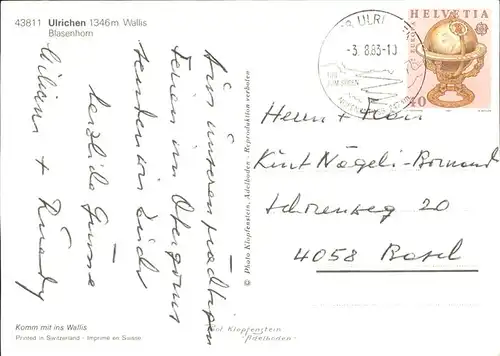 43811 Ulrichen 1346m Wallis
Blasenhorn
Aus unseren prächtigen
Ferien im Obergoms
senden wir Euch
herzliche Grüsse
+ Ruedy
Komm mit ins Wallis
Printed in Switzerland - Imprimé en Suisse
© Photo Klopfenstein, Adelboden - Reproduktion verboten
Klopfenstein
Adelboden
ULRI
-3. 8.83-10
HELVETIA
EUROPA
40
Herrn + Frau
Kurt Nägeli-
20
4058 Basel